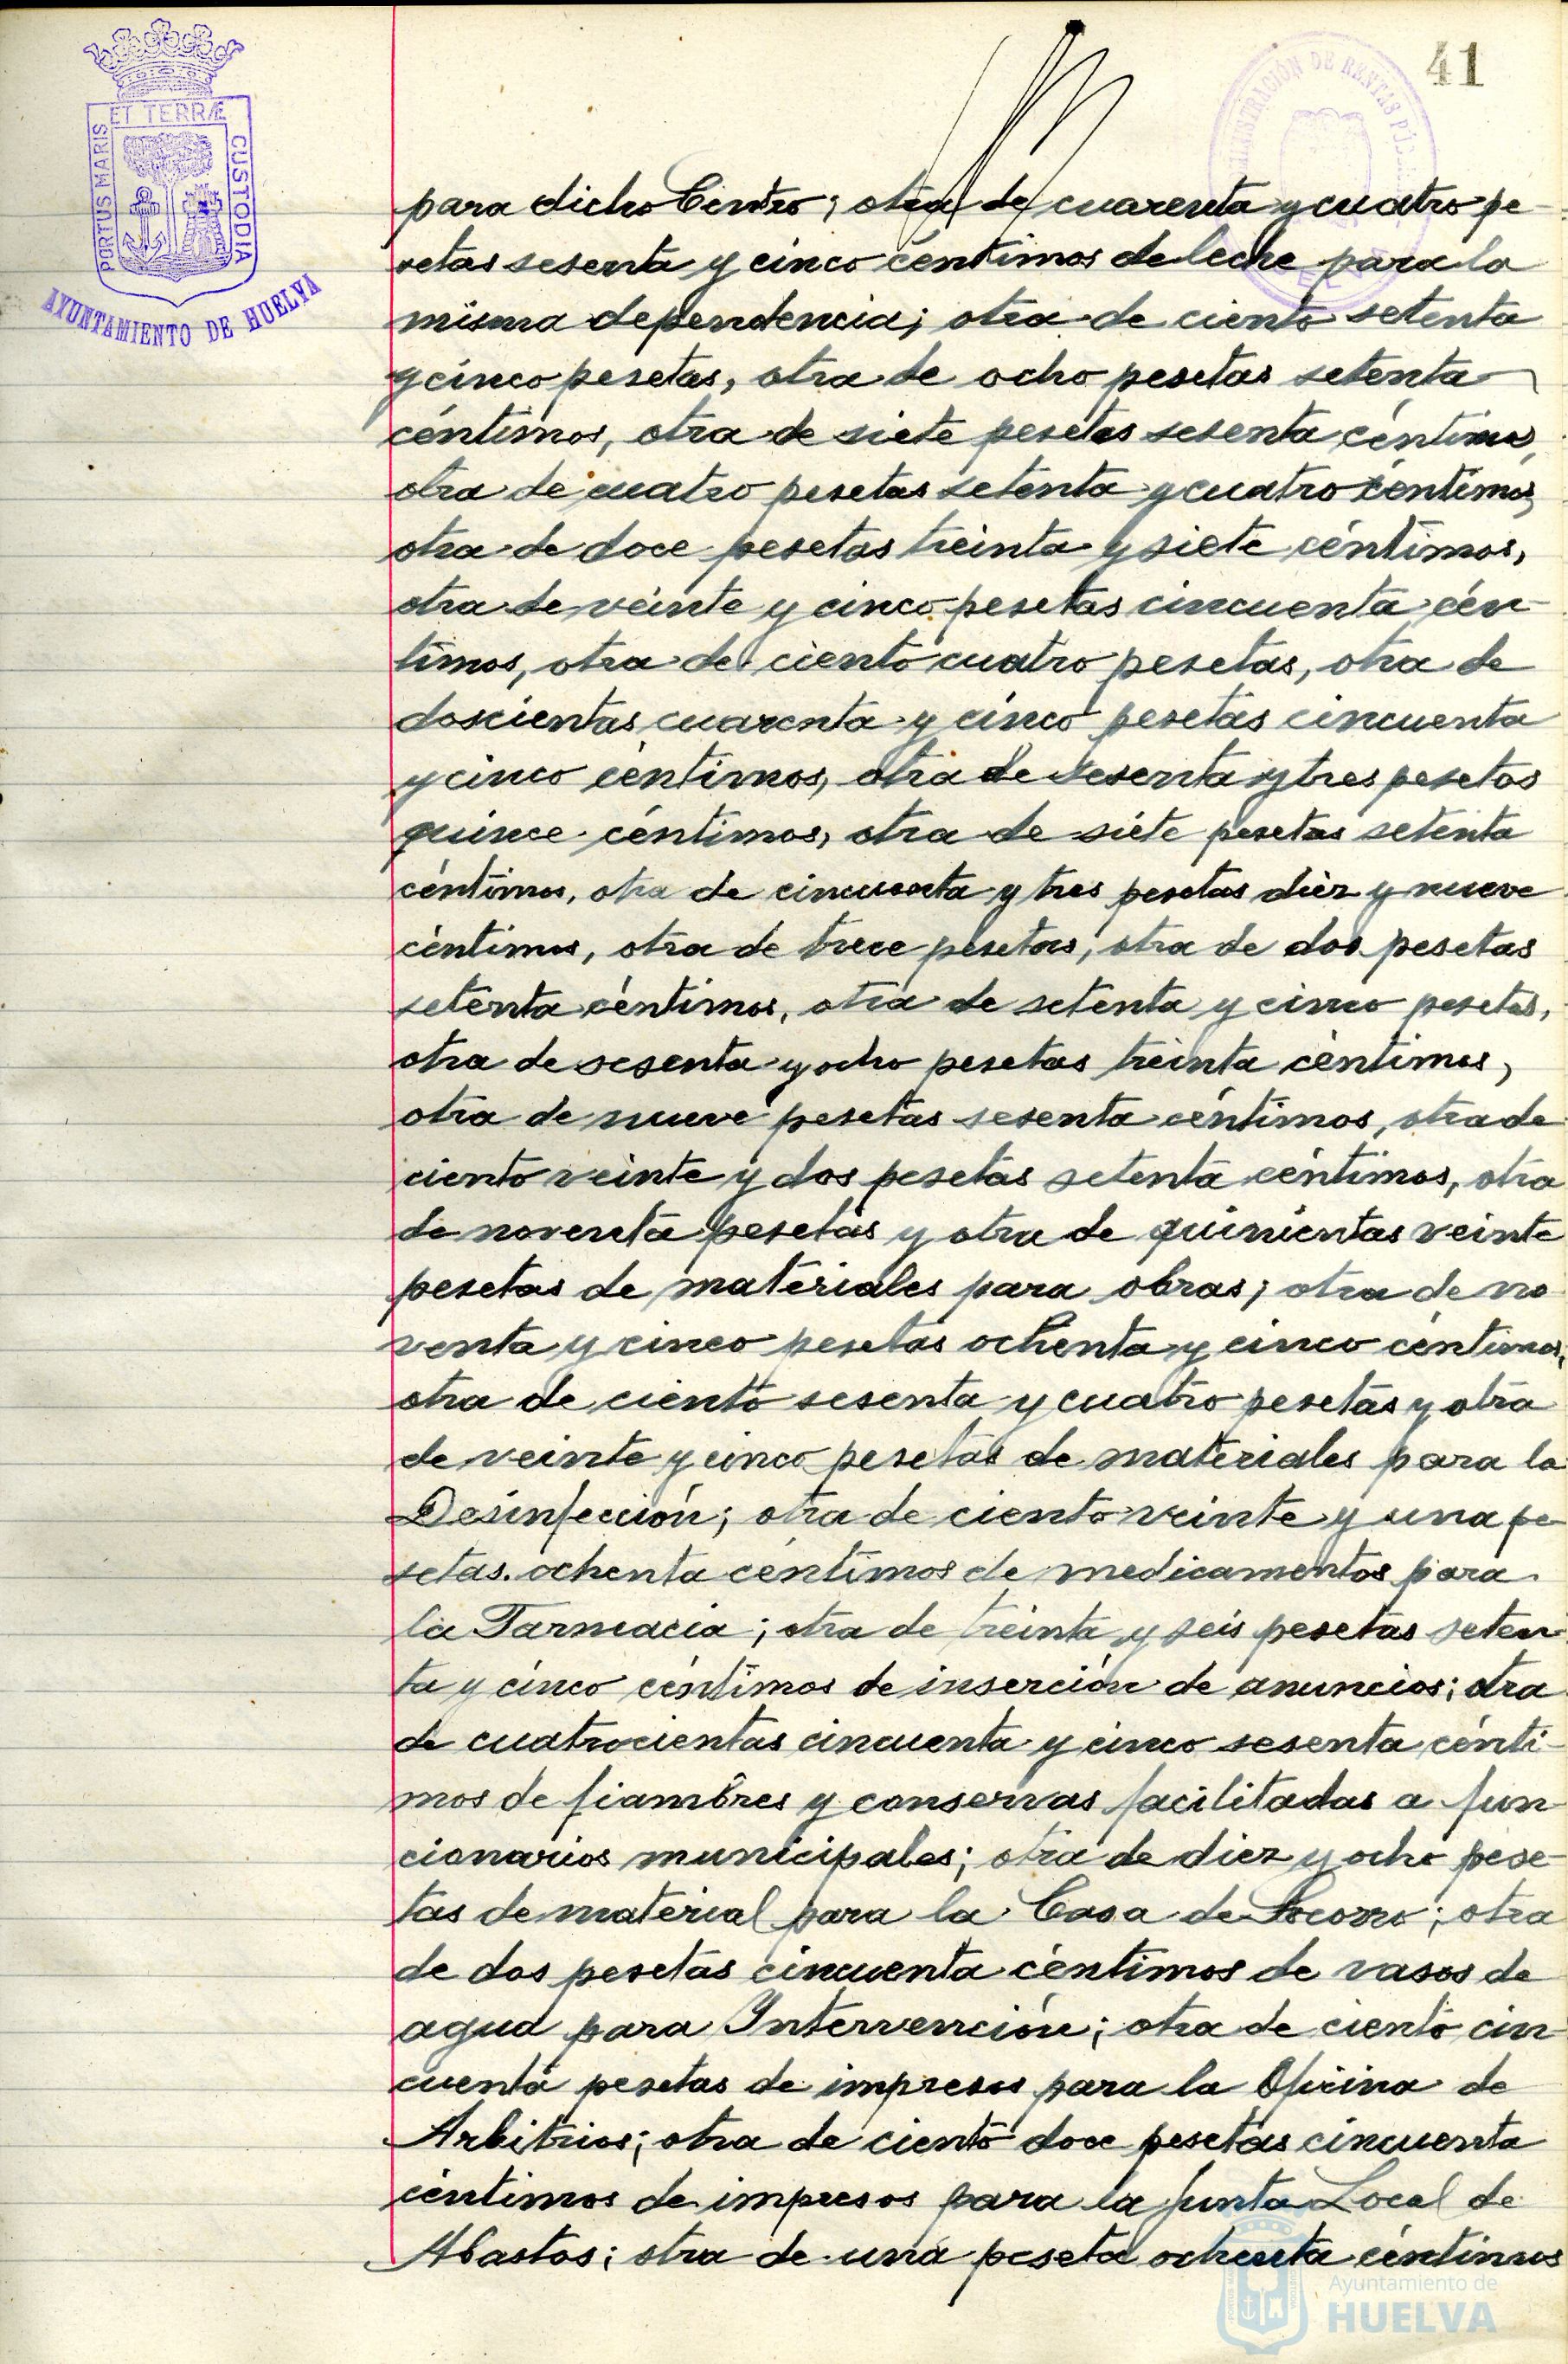 41
PORTUS MARIS
ET TERRÆ
CUSTODIA
AYUNTAMIENTO DE HUELVA
para dicho Centro; otra de cuarenta y cuatro pe-
setas sesenta y cinco céntimos de leche para la
misma dependencia; otra de ciento setenta
y cinco pesetas, otra de ocho pesetas setenta
céntimos, otra de siete pesetas sesenta céntimos,
otra de cuatro pesetas setenta y cuatro céntimos,
otra de doce pesetas treinta y siete céntimos,
otra de veinte y cinco pesetas cincuenta cén-
timos, otra de ciento cuatro pesetas, otra de
doscientas cuarenta y cinco pesetas cincuenta
y cinco céntimos, otra de sesenta y tres pesetas
quince céntimos, otra de siete pesetas setenta
céntimos, otra de cincuenta y tres pesetas diez y nueve
céntimos, otra de trece pesetas, otra de dos pesetas
setenta céntimos, otra de setenta y cinco pesetas,
otra de sesenta y ocho pesetas treinta céntimos,
otra de nueve pesetas sesenta céntimos, otra de
ciento veinte y dos pesetas setenta céntimos, otra
de noventa pesetas y otra de quinientas veinte
pesetas de materiales para obras; otra de no
venta y cinco pesetas ochenta y cinco céntimos,
otra de ciento sesenta y cuatro pesetas y otra
de veinte y cinco pesetas de materiales para la
Desinfección; otra de ciento veinte y una pe
setas ochenta céntimos de medicamentos para
la Farmacia; otra de treinta y seis pesetas seten
ta y cinco céntimos de inserción de anuncios; otra
de cuatrocientas cincuenta y cinco sesenta cénti-
mos de fiambres y conservas facilitadas a fun
cionarios municipales; otra de diez y ocho pese-
tas de material para la Casa de Socorro; otra
de dos pesetas cincuenta céntimos de vasos de
agua para Intervención; otra de ciento cin
cuenta pesetas de impresos para la Oficina de
Arbitrios; otra de ciento doce pesetas cincuenta
céntimos de impresos para la Junta Local de
Abastos; otra de una peseta ochenta céntimos
Ayuntamiento de
HUELVA